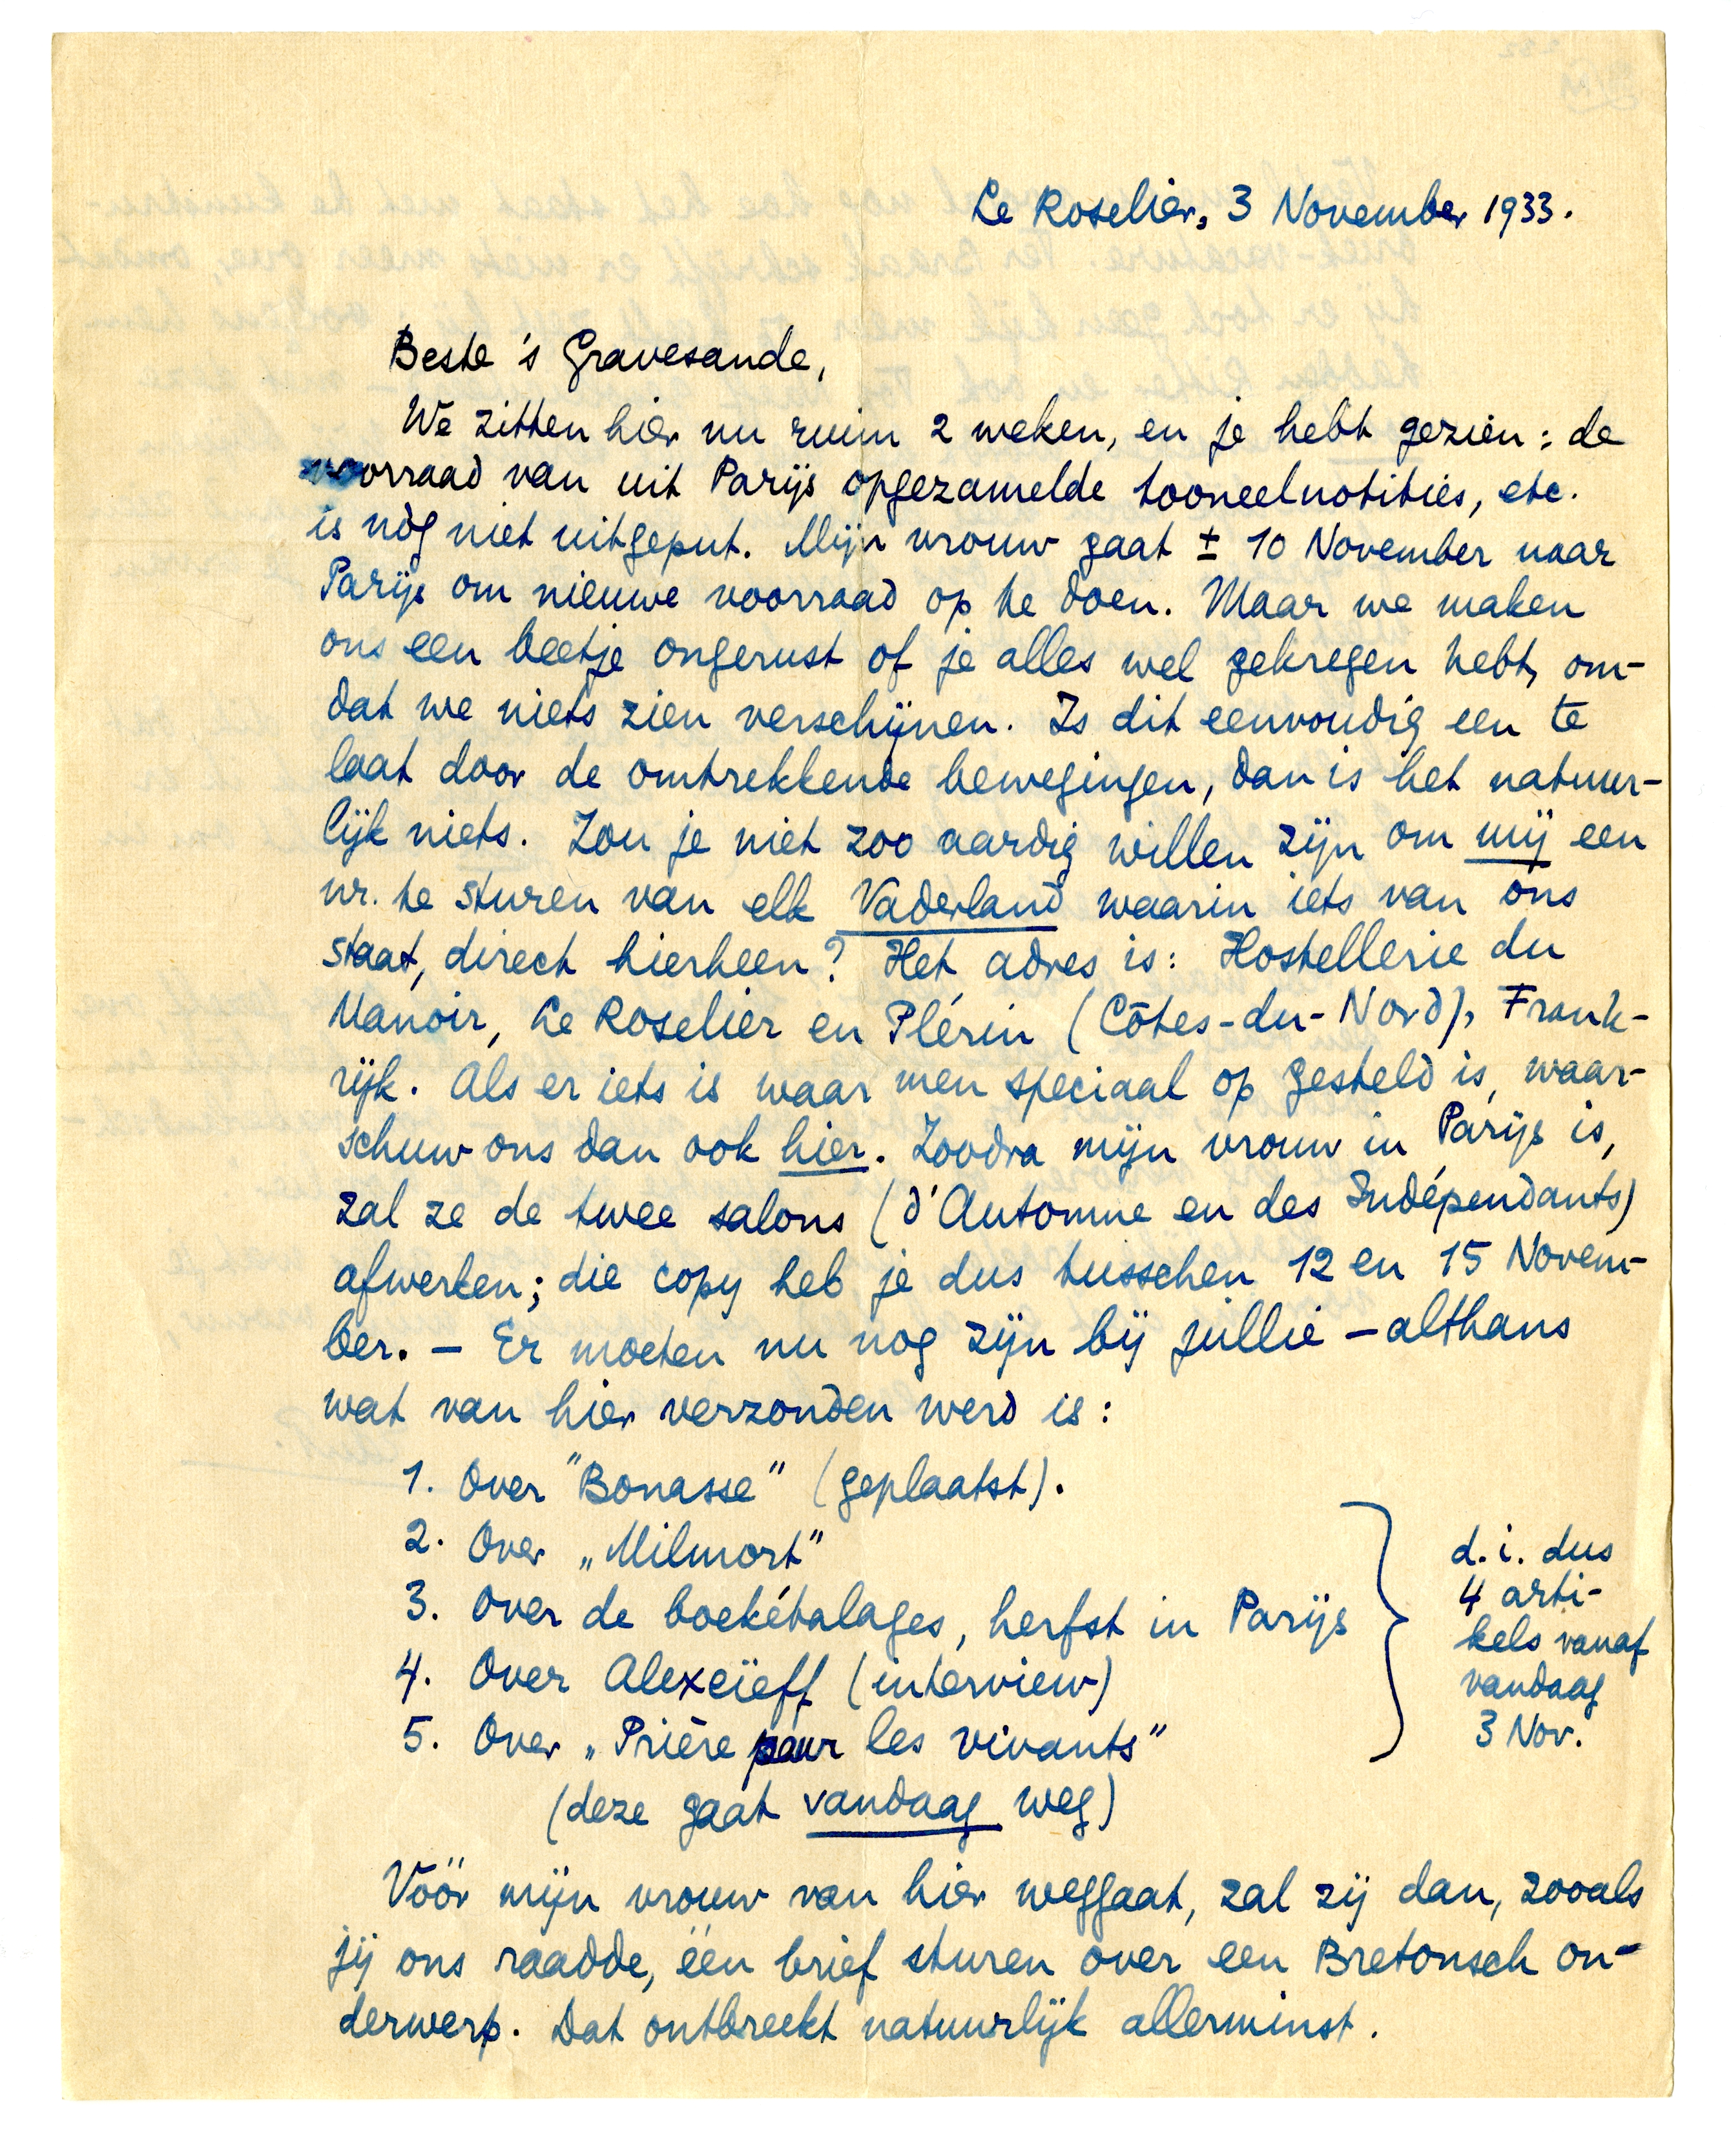 Le Roselier, 3 November 1933.
Beste 's Gravesande,
We zitten hier nu ruim 2 weken, en je hebt gezien: de
voorraad van uit Parijs opgezamelde tooneelnotities, etc.
is nòg niet uitgeput. Mijn vrouw gaat ± 10 November naar
Parijs om nieuwe voorraad op te doen. Maar we maken
ons een beetje ongerust of je alles wel gekregen hebt, om-
dat we niets zien verschijnen. Is dit eenvoudig een te
laat door de omtrekkende bewegingen, dan is het natuur-
lijk niets. Zou je niet zoo aardig willen zijn om mij een
nr. te sturen van elk Vaderland waarin iets van ons
staat, direct hierheen? Het adres is: Hostellerie du
Manoir, Le Roselier en Plérin (Côtes-du-Nord), Frank-
rijk. Als er iets is waar men speciaal op gesteld is, waar-
schuw ons dan ook hier. Zoodra mijn vrouw in Parijs is,
zal ze de twee salons (d'Automne en des Indépendants)
afwerken; die copy heb je dus tusschen 12 en 15 Novem-
ber. – Er moeten nu nog zijn bij jullie – althans
wat van hier verzonden werd is:
1. Over "Bonasse" (geplaatst).
2. Over „Milmort"
3. Over de boekétalages, herfst in Parijs
4. Over Alexeïeff (interview)
5. Over „Prière pour les vivants"
(deze gaat vandaag weg)
d.i. dus
4 arti-
kels vanaf
vandaag
3 Nov.
Vóór mijn vrouw van hier weggaat, zal zij dan, zooals
jij ons raadde, één brief sturen over een Bretonsch on-
derwerp. Dat ontbreekt natuurlijk allerminst.